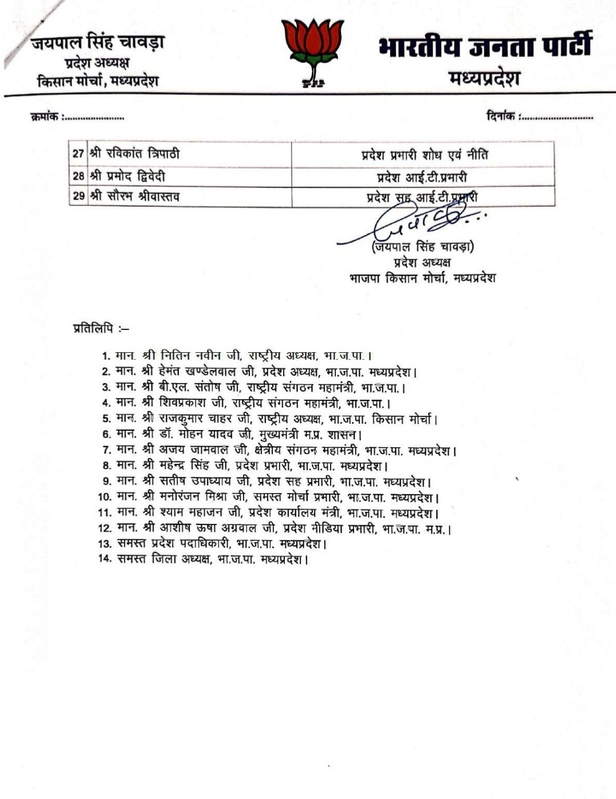 जयपाल सिंह चावड़ा
प्रदेश अध्यक्ष
किसान मोर्चा, मध्यप्रदेश
भारतीय जनता पार्टी
मध्यप्रदेश
क्रमांक :.....................
दिनांक :..........................
27 श्री रविकांत त्रिपाठी प्रदेश प्रभारी शोध एवं नीति
28 श्री प्रमोद द्विवेदी प्रदेश आई.टी.प्रभारी
29 श्री सौरभ श्रीवास्तव प्रदेश सह आई.टी.प्रभारी
(जयपाल सिंह चावड़ा)
प्रदेश अध्यक्ष
भाजपा किसान मोर्चा, मध्यप्रदेश
प्रतिलिपि :–
1. मान. श्री नितिन नवीन जी, राष्ट्रीय अध्यक्ष, भा.ज.पा. ।
2. मान. श्री हेमंत खण्डेलवाल जी, प्रदेश अध्यक्ष, भा.ज.पा. मध्यप्रदेश।
3. मान. श्री बी.एल. संतोष जी, राष्ट्रीय संगठन महामंत्री, भा.ज.पा.।
4. मान. श्री शिवप्रकाश जी, राष्ट्रीय संगठन महामंत्री, भा.ज.पा.।
5. मान. श्री राजकुमार चाहर जी, राष्ट्रीय अध्यक्ष, भा.ज.पा. किसान मोर्चा।
6. मान. श्री डॉ. मोहन यादव जी, मुख्यमंत्री म.प्र. शासन।
7. मान. श्री अजय जामवाल जी, क्षेत्रीय संगठन महामंत्री, भा.ज.पा. मध्यप्रदेश।
8. मान. श्री महेन्द्र सिंह जी, प्रदेश प्रभारी, भा.ज.पा. मध्यप्रदेश।
9. मान. श्री सतीष उपाध्याय जी, प्रदेश सह प्रभारी, भा.ज.पा. मध्यप्रदेश।
10. मान. श्री मनोरंजन मिश्रा जी, समस्त मोर्चा प्रभारी, भा.ज.पा. मध्यप्रदेश।
11. मान. श्री श्याम महाजन जी, प्रदेश कार्यालय मंत्री, भा.ज.पा. मध्यप्रदेश।
12. मान. श्री आशीष ऊषा अग्रवाल जी, प्रदेश मीडिया प्रभारी, भा.ज.पा. म.प्र.।
13. समस्त प्रदेश पदाधिकारी, भा.ज.पा. मध्यप्रदेश।
14. समस्त जिला अध्यक्ष, भा.ज.पा. मध्यप्रदेश।